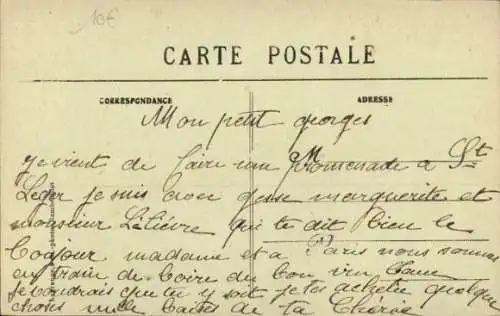 10€
CARTE POSTALE
CORRESPONDANCE
ADRESSE
Mon petit georges
je vient de faire une promenade a St
Leger je suis avec marguerite et
monsieur Lelièvre qui te dit bien le
boujour madame et a Paris nous sommes
en train de boire du bon vin
je voudrais que tu y soit je tes acheter quelque
chose mille baises de ta